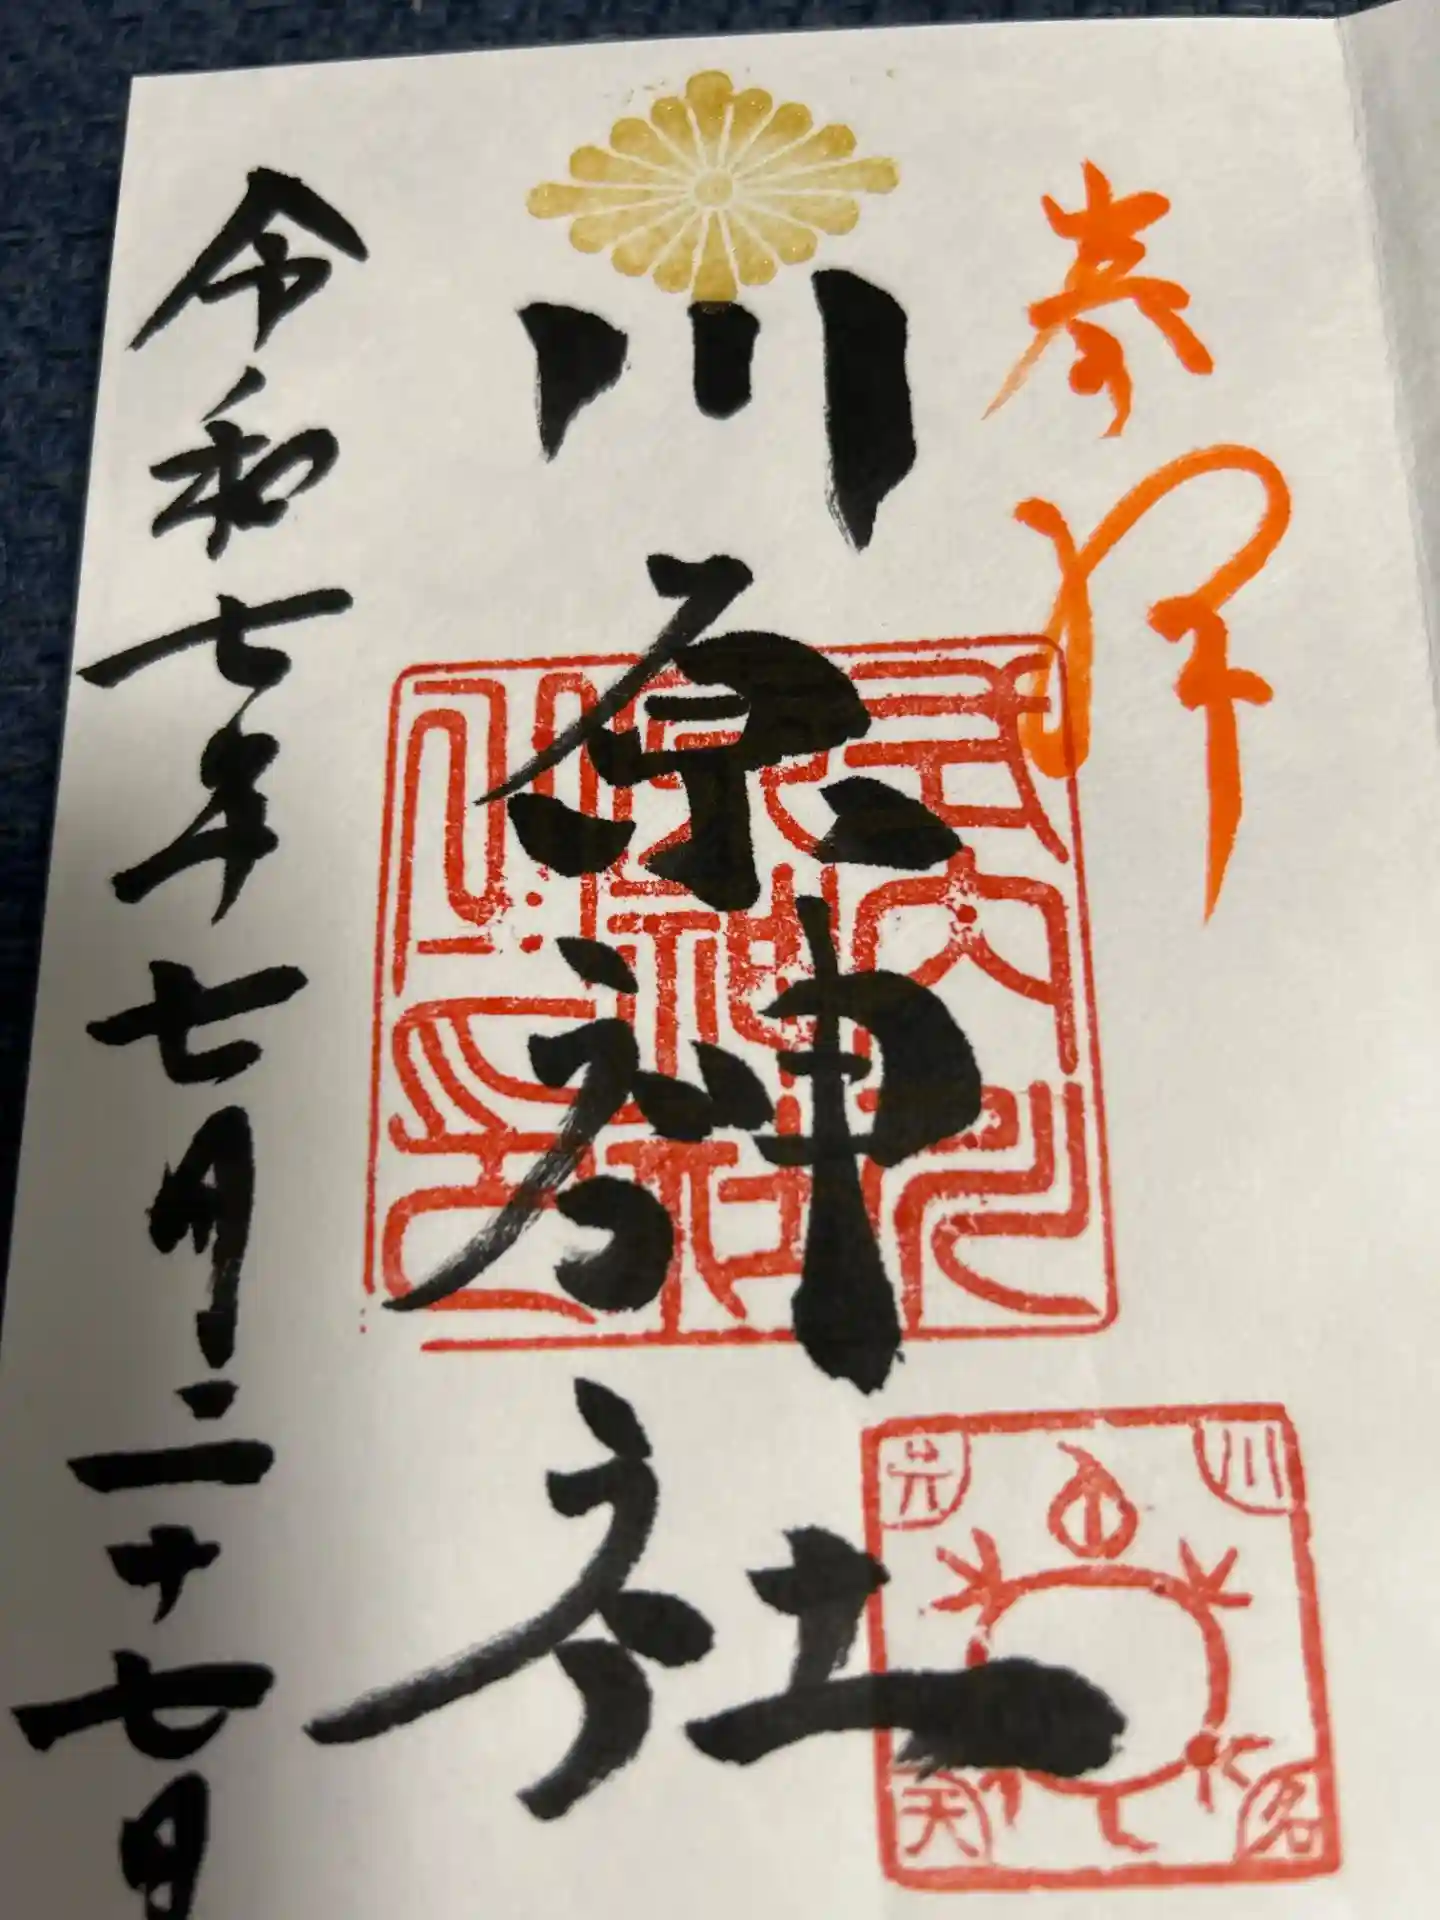 奉拝
川原神社
令和七年七月二十七日
川
名
天